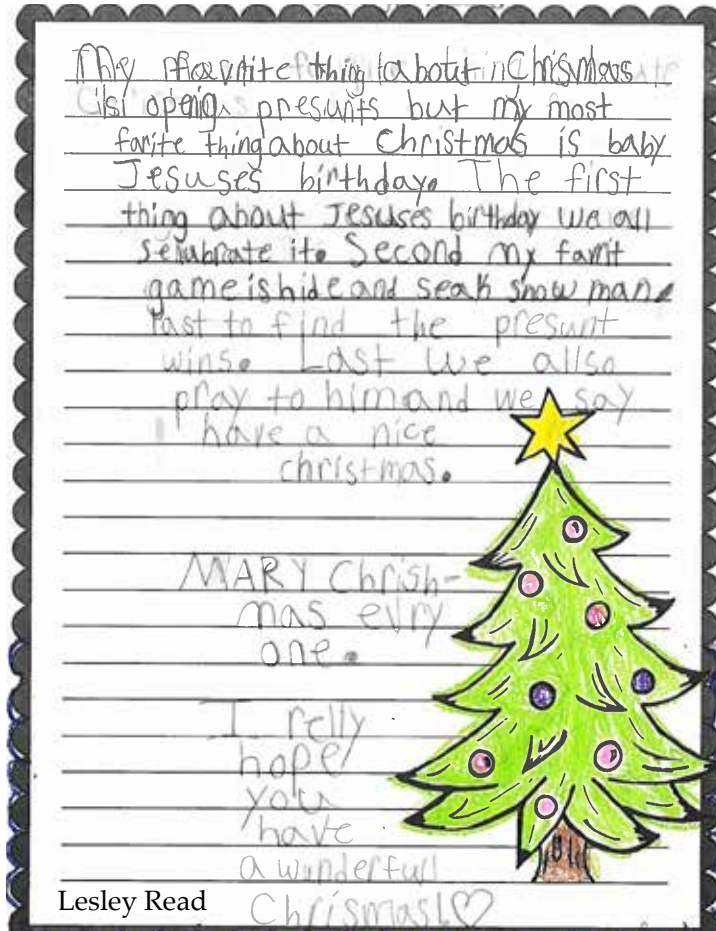 My favrite thing about Chrismas
is openig presunts but my most
farite thing about Christmas is baby
Jesuses birthday. The first
thing about Jesuses birthday we all
selubrate it. Second my farit
game is hide and seak snow man.
Fast to find the presunt
wins. Last we allso
pray to him and we say
have a nice
christmas.
MARY Chrish-
mas evry
one.
I relly
hope
you
have
a wunderfull
Chrismas!♡
Lesley Read